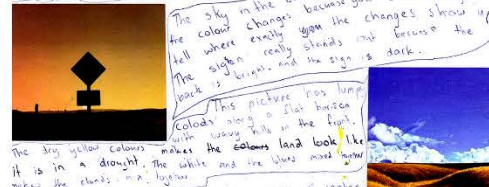 The sky in the
the colour changes because you
tell where exactly you the changes show u
The sign really stands out because the
back is bright, and the sign is dark.
This picture has lump
clouds along a flat horizon
with wavy hills in the front.
The dry yellow colours makes the colours land look like
it is in a drought. The white and the blues mixed together
makes the clouds